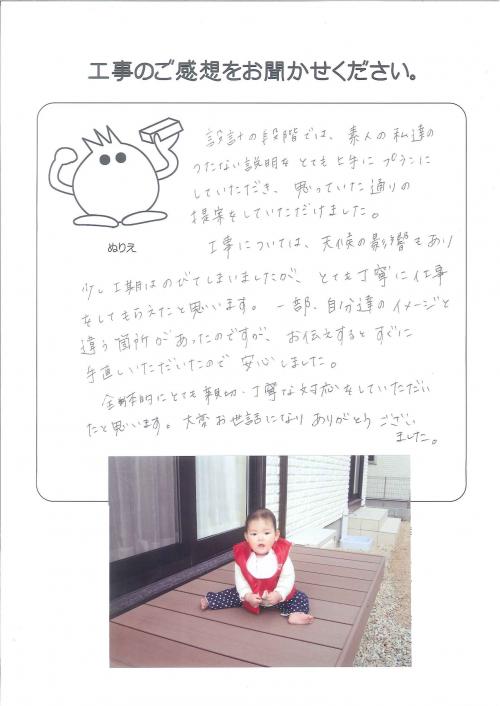 工事のご感想をお聞かせください。
ぬりえ
設計の段階では、素人の私達の
つたない説明をとても上手にプランに
していただき、思っていた通りの
提案をしていただけました。
工事については、天候の影響もあり
少し工期はのびてしまいましたが、とても丁寧に仕事
をしてもらえたと思います。一部、自分達のイメージと
違う箇所があったのですが、お伝えするとすぐに
手直しいただいたので安心しました。
全体的にとても親切・丁寧な対応をしていただい
たと思います。大変お世話になりありがとうござい
ました。